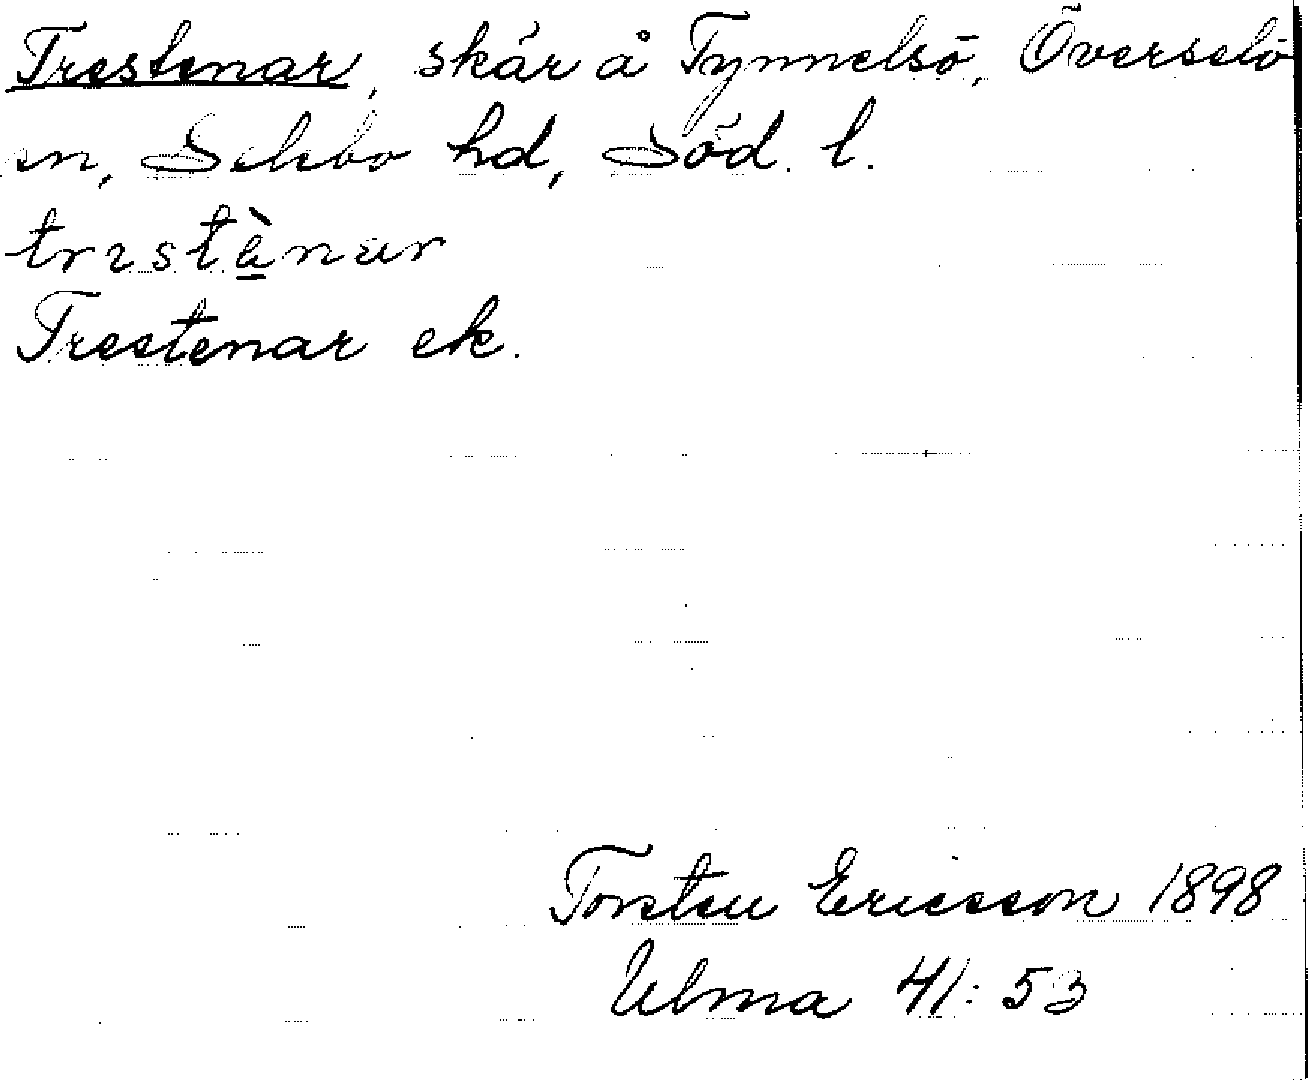 Trestenar, skär å Tynnelsö, Överselö
sn, Selebo hd, Söd. l.
trɩstὲnar
Trestenar ek.
Torsten Ericsson 1898
Ulma 41:53